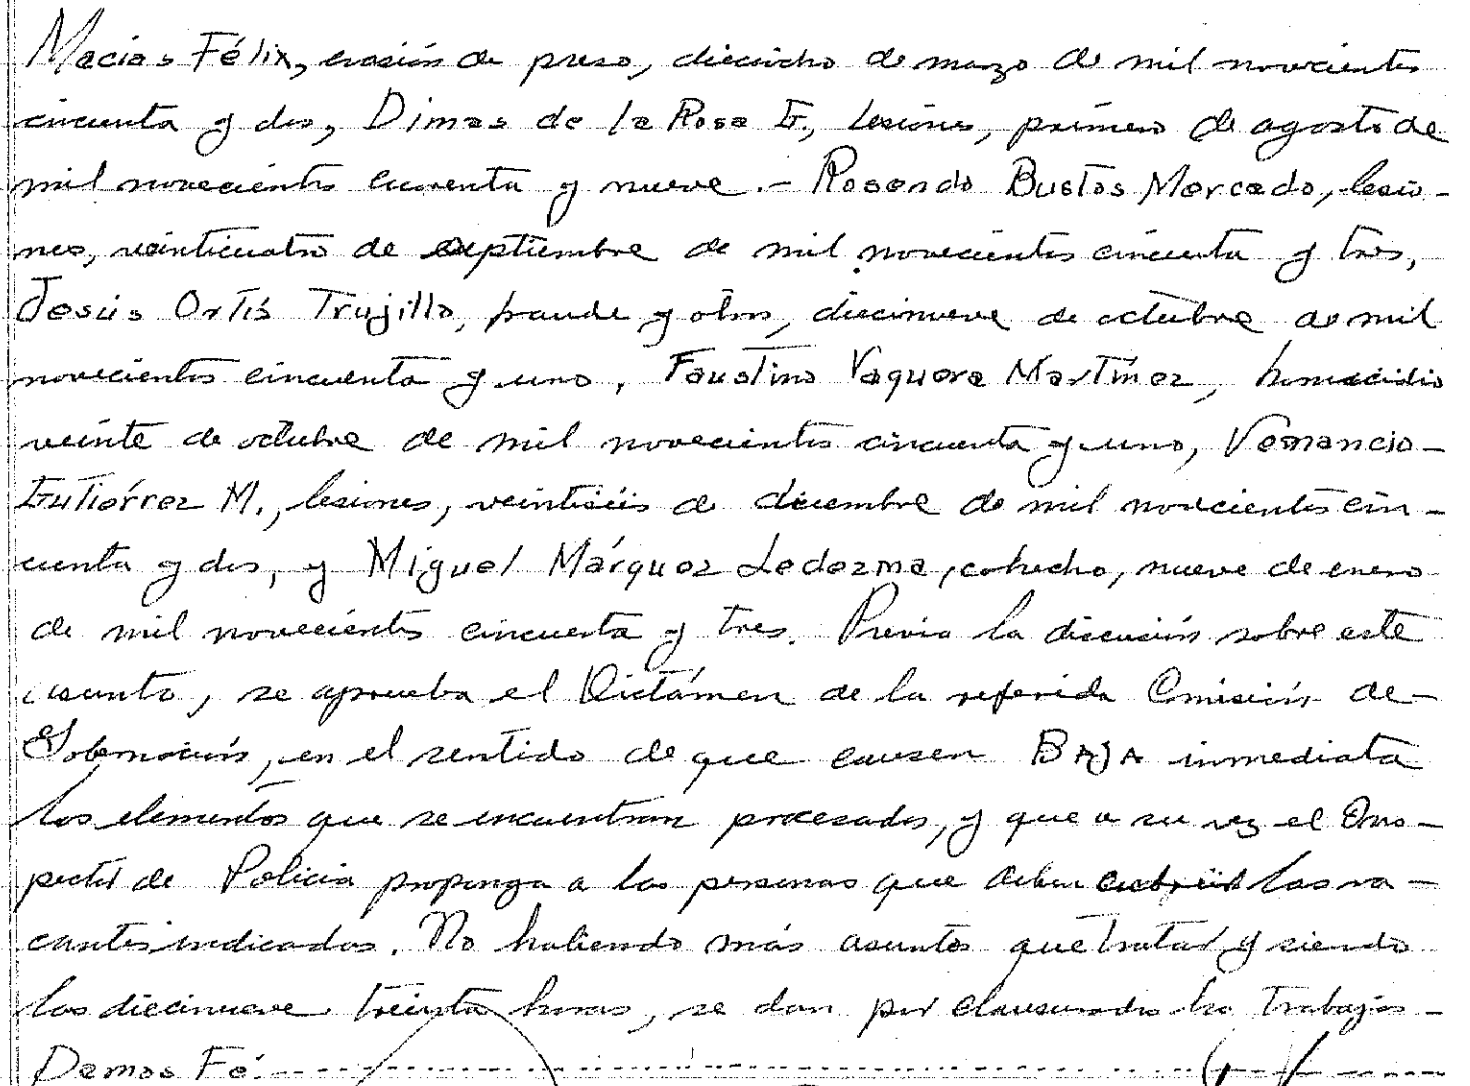 Macias Félix, evasión de preso, dieciocho de marzo de mil novecientos
cincuenta y dos, Dimas de la Rosa G., lesiones, primero de agosto de
mil novecientos cuarenta y nueve.- Rosendo Bustos Mercado, lesio-
nes, veinticuatro de septiembre de mil novecientos cincuenta y tres,
Jesús Ortís Trujillo, fraude y otros, diecinueve de octubre de mil
novecientos cincuenta y uno, Faustino Vaquera Martínez, homicidio
veinte de octubre de mil novecientos cincuenta y uno, Venancio-
Gutiérrez M., lesiones, veintiseis de diciembre de mil novecientos cin-
cuenta y dos, y Miguel Márquez Ledezma, cohecho, nueve de enero
de mil novecientos cincuenta y tres. Previa la discusión sobre este
asunto, se aprueba el Dictámen de la referida Comisión de-
Gobernación, en el sentido de que causen BAJA inmediata
los elementos que se encuentran procesados, y que a su vez el Ins-
pector de Policia proponga a las personas que deben cubrir las va-
cantes indicadas. No habiendo más asuntos que tratar y siendo
las diecinueve treinta horas, se dan por clausurados los trabajos-
Damos Fé.